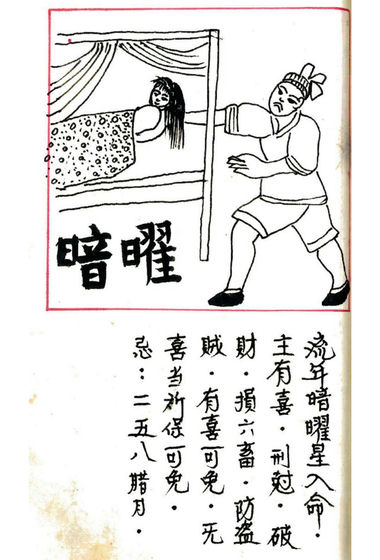 暗曜
流年暗曜星入命．
主有喜．刑尅．破
財．損六畜．防盜
賊．有喜可免．无
喜当祈保可免．
忌：二五八腊月．